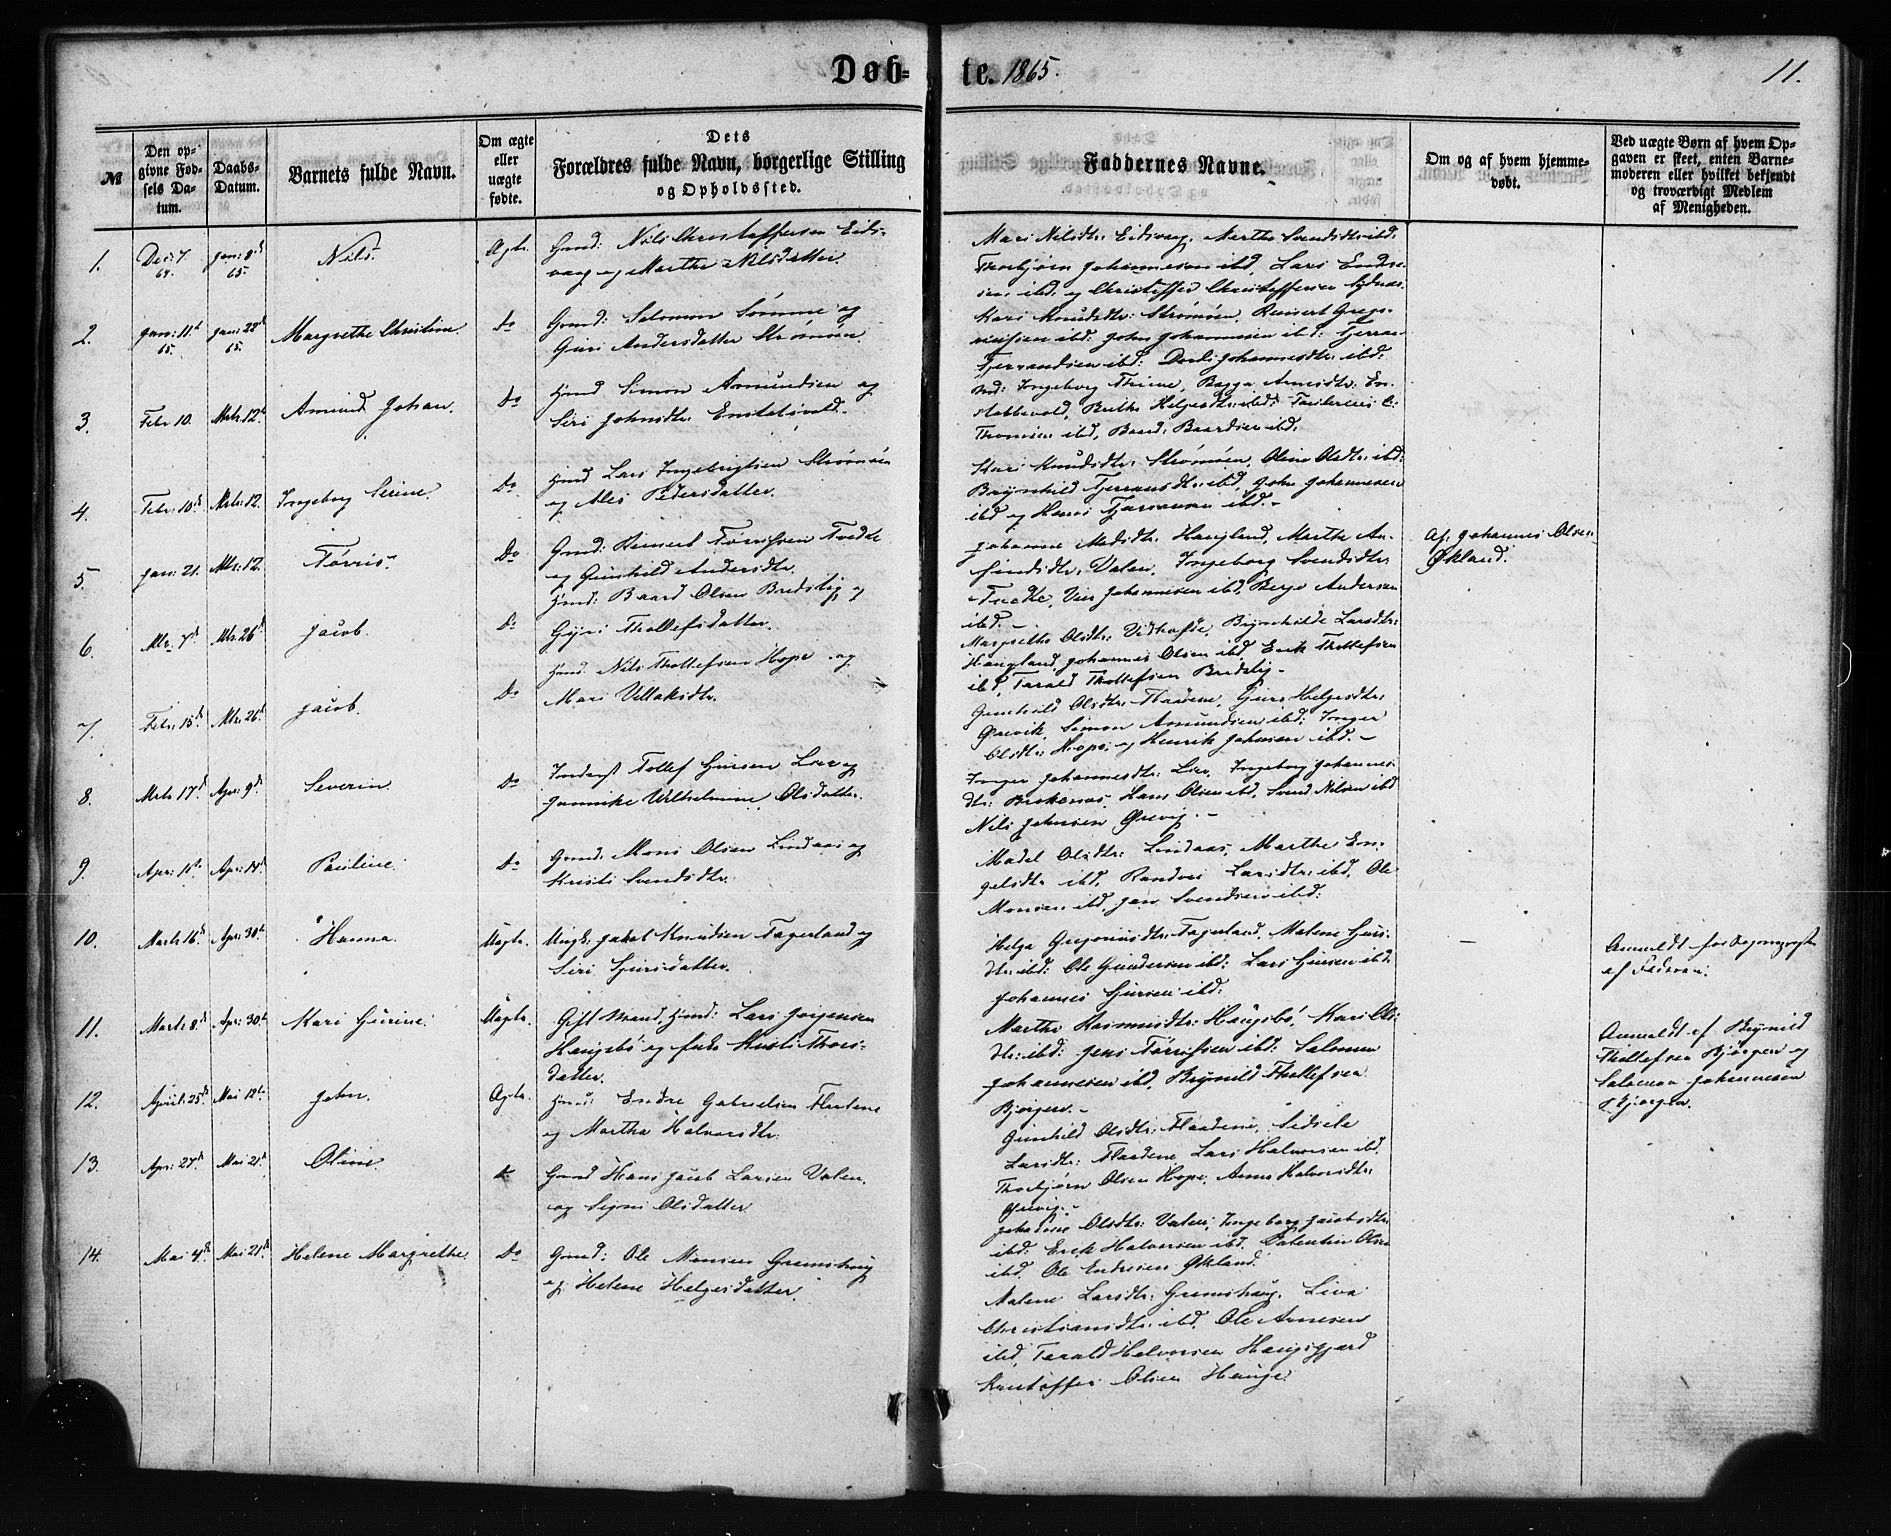 Døb-
te. 1865.
11.
№
Den op-
givne Fød-
sels Da-
tum.
Daabs-
Datum.
Barnets fulde Navn.
Om ægte
eller
uægte
fødte.
Dets
Forældres fulde Navn, borgerlige Stilling
og Opholdssted.
Faddernes Navne.
Om og af hvem hjemme-
døbt.
Ved uægte Børn af hvem Op-
gaven er skeet, enten Barne-
moderen eller hvilket bekjendt
og troværdigt Medlem
af Menigheden.
1.
Dec: 7
64.
Jan: 8d
65.
Nils
Ægte.
Gmd: Nils Christoffersen Eids-
vaag og Marthe Nilsdatter.
Mari Nilsdtr: Eidsvaag, Marthe Svendsdtr ibd:
Thorbjørn Johannesen ibd, Lars Endre-
sen ibd: og Christoffer Christoffersen
2.
Jan: 11te
65.
Jan: 22d
65.
Margrethe Christine.
Do
Gmd: Salomon Sømme og
Guri Andersdatter Strømøen.
Kari Knudsdtr: Strømøen, Reinert Greg-
oriussen ibd: John Johannesen ibd:
ibd: Johannesdtr: ibd:
3.
Febr 10.
Mrts: 12te
Amund Johan.
Do
Hmd Simon Asmundsen og
Siri Johnsdtr. Enstabøvold.
Hmd: Ingeborg Thine, Bagga Arnesdtr: En-
stabbevold, Brithe Helgesdtr: ibd:
Thomsen ibd, Baard Baardsen ibd.
4.
Febr: 10d
Mrts: 12.
Ingeborg Serine.
Do
Hmd Lars Ingebrigtsen Strømøen
og Ales Pedersdatter.
Kari Knudsdtr: Strømøen, Oline Olsdtr: ibd:
Brynhild ibd, John Johannesen
ibd og Hans ibd.-
5.
Jan: 21.
Mts: 12.
Tørris.
Do
Gmd: Reinert Tørrissen Tvedte
og Gunhild Andersdtr.
Johanne Madsdtr: Haugland, Marthe An-
findsdtr: Valen, Ingeborg Svendsdtr:
Tvedte, Johannesen ibd, Berge Andersen
ibd.-
Af: Johannes Olsen
Økland.
6.
Mts: 7d
Mts: 26d
Jacob.
Do
Hmd: Baard Olsen Bredslig og
Gyri Thollefsdatter.
Margrethe Olsdtr: Brynhilde Larsdtr:
Haugland, Johannes Olsen ibd, Erik Thollefsen
ibd, Tarald Thollefsen Bredslig.-
7.
Febr: 15d
Mts: 26d
Jacob.
Do
Hmd: Nils Thollefsen Hope og
Mari Villaksdtr.
Gunhild Olsdtr: Flaadene, Guri Helgesdtr:
Ørevik, Simon Asmundsen ibd: Inger
Olsdtr: Hope, og Henrik Johnsen ibd.-
8.
Mrts 17d
Apr: 9d
Severin.
Do
Inderst Tollef Gursen Lier og
Jannike Wilhelmine Olsdatter.
Inger Johannesdtr: Lier, Ingeborg Johannes-
dtr: Hans Olsen ibd, Svend Nilsen ibd
Nils Johnsen Ørevig.-
9.
Apr: 11te
Apr: 14d
Pauline.
Do
Gmd: Mons Olsen Lindaas og
Kristi Svendsdtr.
Madel Olsdtr: Lindaas, Marthe En-
gelsdtr ibd, Randvei Larsdtr: ibd, Ole
Monsen ibd, Jan Svendsen ibd:
10.
Marts 16d
Apr: 30te
Hanna.
Uægte.
Ungk. Jakob Knudsen Fagerland og
Siri Sjursdatter.
Helga Gregoriusdtr: Fagerland, Malene Sjurs-
dtr: ibd: Ole Gundersen ibd: Lars Sjursen ibd:
Johannes Sjursen ibd:
Anmeldt for Sognepræst
af Faderen.
11.
Marts 8d
Apr: 30te
Kari Gurine.
Uægte.
Gift Mand, Hmd: Lars Jørgensen
Haugsbø og Kristi Thores-
datter.
Marthe Rasmusdtr: Haugsbø, Kari Ols-
dtr: ibd: Jens Tørrissen ibd: Salomon
Johannesen ibd, Brynild Thollefsen
Bjørgen.-
Anmeldt af Brynild
Thollefsen Bjørgen og
Salomon Johannesen
Bjørgen.
12.
April: 25de
Mai 12te
John.
Ægte.
Hmd: Endre Gabrielsen
og Martha Halvorsdtr.
Gunhild Olsdtr: Flaadene, Sidsele
Larsdtr: Flaadene, Lars Halvorsen ibd.
Thorbjørn Olsen Hope, Anna Halvorsdtr:
Ørevig.-
13.
Apr: 27d
Mai 21d
Oline
Do
Gmd Hans Jacob Larsen Valen.
og Signi Olsdatter
Johanne Olsdtr: Valen, Ingeborg Jacobsdtr:
ibd: Erik Halvorsen ibd. Valentin Olsen
ibd. Ole Endresen Økland.
14.
Mai 4de
Mai 21d
Helene Margrethe.
Do
Gmd: Ole Monsen Gremshaug
og Helene Helgesdatter.
Malene Larsdtr: Gremshaug. Liva
Christiansdtr: ibd. Ole Arnesen
ibd, Tarald Halvorsen Haugsgjerd
Kristoffer Olsen Hauge.